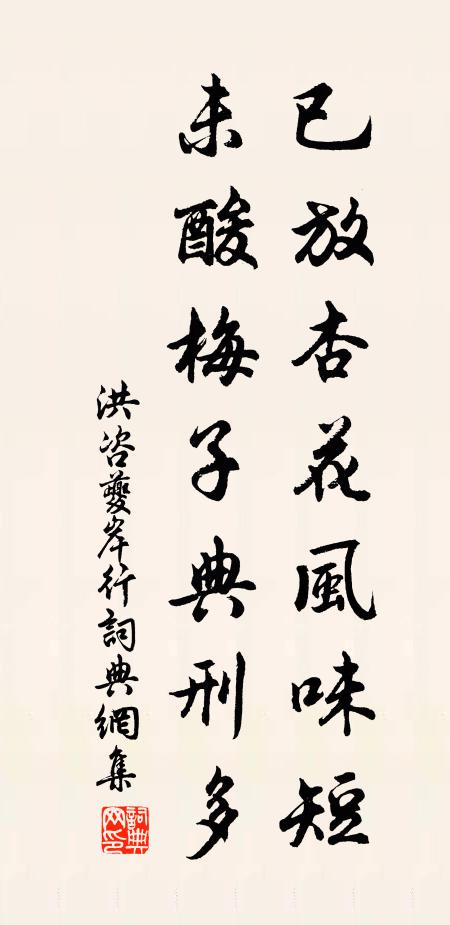 已放杏花風味短
未酸梅子典刑多
洪咨夔岸行詞典網集
詞典網印